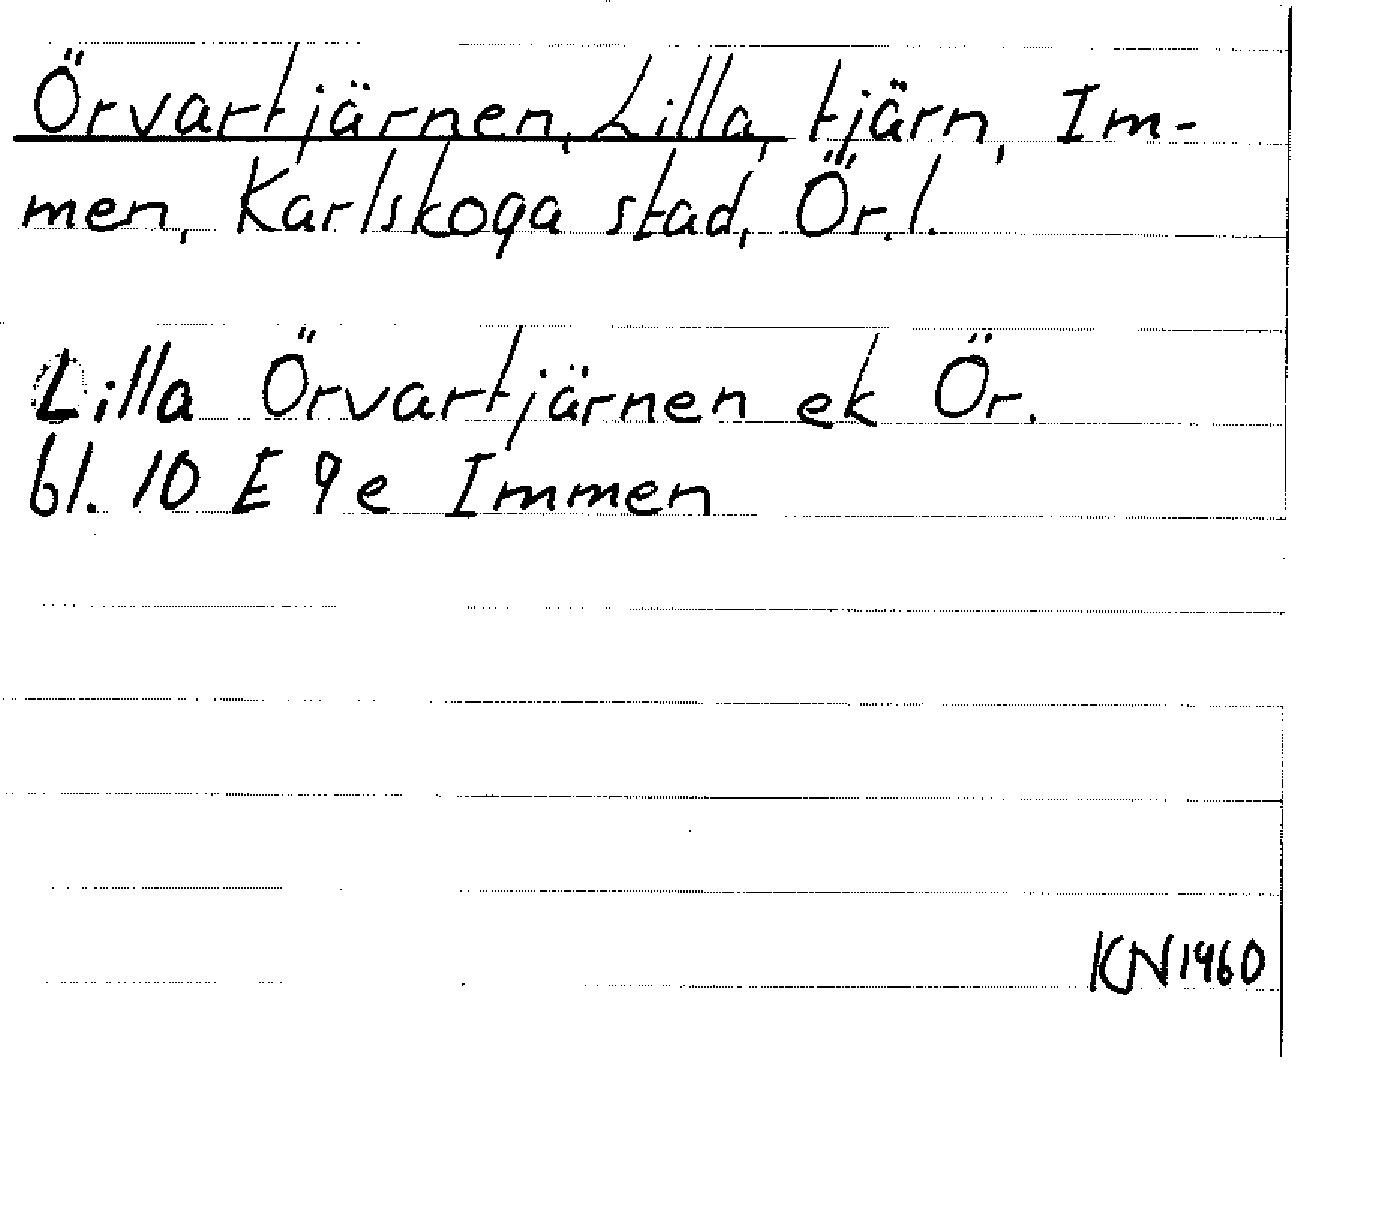 Örvartjärnen, Lilla, tjärn, Im-
men, Karlskoga stad, Ör.l.
Lilla Örvartjärnen ek Ör.
bl. 10 E 9e Immen
KN1960